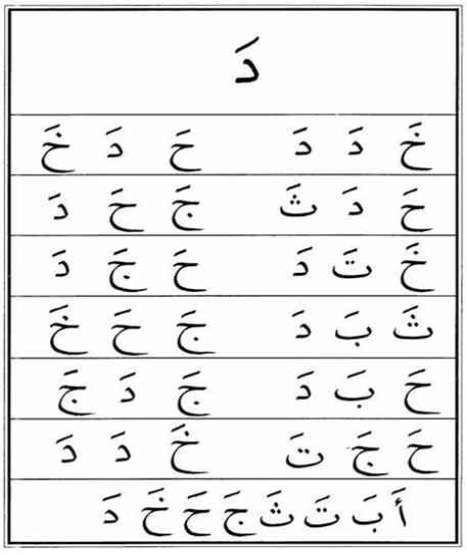 دَ
خَ دَ دَ حَ دَ خَ
حَ دَ ثَ جَ حَ دَ
خَ تَ دَ حَ جَ دَ
ثَ بَ دَ جَ حَ خَ
حَ بَ دَ جَ دَ جَ
حَ جَ تَ خَ دَ دَ
أَ بَ تَ ثَ جَ حَ خَ دَ